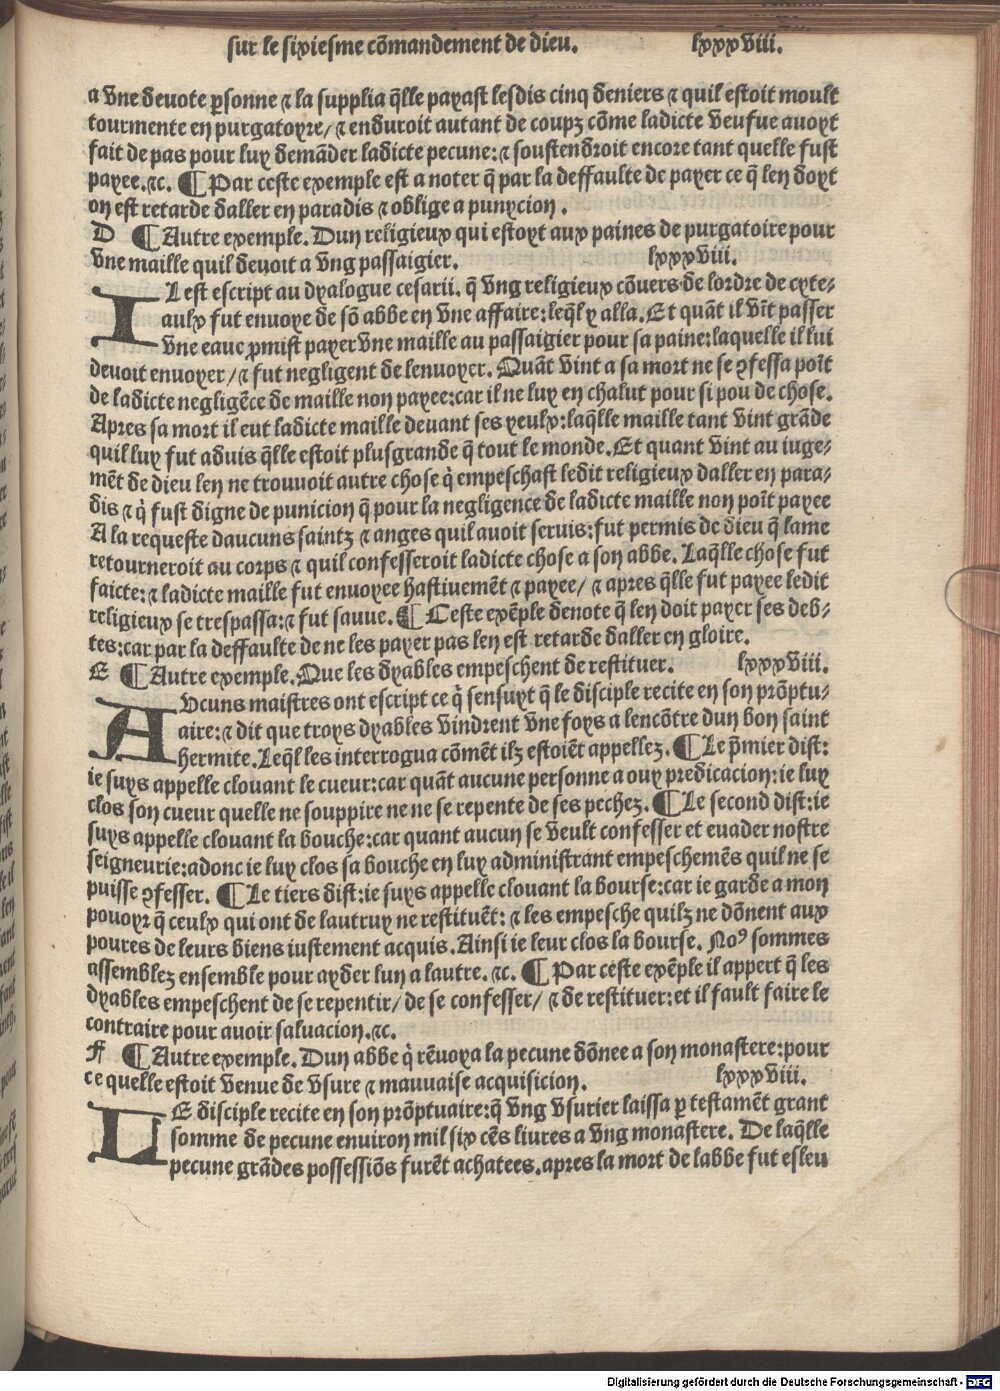 sur le sixiesme cõmandement de dieu. lxxxviii.
a vne deuote ꝑsonne ⁊ la supplia q̃lle payast lesdis cinq deniers ⁊ quil estoit moult
tourmente en purgatoyre/ ⁊ enduroit autant de coupz cõme ladicte veufue auoyt
fait de pas pour luy demãder ladicte pecune: ⁊ soustendroit encore tant quelle fust
payee.⁊c. ¶ Par ceste exemple est a noter q̃ par la deffaulte de payer ce q̃ len doyt
on est retarde daller en paradis ⁊ oblige a punycion.
D ¶ Autre exemple. Dun religieux qui estoyt aux paines de purgatoire pour
vne maille quil deuoit a vng passaigier. lxxxviii.
IL est escript au dyalogue cesarii. q̃ vng religieux cõuers de lordre de cyte-
aulx fut enuoye de sõ abbe en vne affaire: leq̃l y alla. Et quãt il vĩt passer
vne eaue ꝓmist payer vne maille au passaigier pour sa paine: laquelle il lui
deuoit enuoyer/ ⁊ fut negligent de lenuoyer. Quãt vint a sa mort ne se ꝯfessa poĩt
de ladicte negligẽce de maille non payee: car il ne luy en chalut pour si pou de chose.
Apres sa mort il eut ladicte maille deuant ses yeulx: laq̃lle maille tant vint grãde
quil luy fut aduis q̃lle estoit plusgrande q̃ tout le monde. Et quant vint au iuge-
mẽt de dieu len ne trouuoit autre chose q̃ empeschast ledit religieux daller en para-
dis ⁊ q̃ fust digne de punicion q̃ pour la negligence de ladicte maille non poĩt payee
A la requeste daucuns saintz ⁊ anges quil auoit seruis: fut permis de dieu q̃ lame
retourneroit au corps ⁊ quil confesseroit ladicte chose a son abbe. Laq̃lle chose fut
faicte: ⁊ ladicte maille fut enuoyee hastiuemẽt ⁊ payee/ ⁊ apres q̃lle fut payee ledit
religieux se trespassa: ⁊ fut sauue. ¶ Ceste exẽple denote q̃ len doit payer ses deb-
tes: car par la deffaulte de ne les payer pas len est retarde daller en gloire.
E ¶ Autre exemple. Que les dyables empeschent de restituer. lxxxviii.
AVcuns maistres ont escript ce q̃ sensuyt q̃ le disciple recite en son prõptu-
aire: ⁊ dit que troys dyables vindrent vne foys a lencõtre dun bon saint
hermite. Leq̃l les interrogua cõmẽt ilz estoiẽt appellez. ¶ Le p̃mier dist:
ie suys appelle clouant le cueur: car quãt aucune personne a ouy predicacion: ie luy
clos son cueur quelle ne souppire ne ne se repente de ses pechez. ¶ Le second dist: ie
suys appelle clouant la bouche: car quant aucun se veult confesser et euader nostre
seigneurie: adonc ie luy clos sa bouche en luy administrant empeschemẽs quil ne se
puisse ꝯfesser. ¶ Le tiers dist: ie suys appelle clouant la bourse: car ie garde a mon
pouoyr q̃ ceulx qui ont de lautruy ne restituẽt: ⁊ les empesche quilz ne dõnent aux
poures de leurs biens iustement acquis. Ainsi ie leur clos la bourse. Noꝰ sommes
assemblez ensemble pour ayder lun a lautre. ⁊c. ¶ Par ceste exẽple il appert q̃ les
dyables empeschent de se repentir/ de se confesser/ ⁊ de restituer: et il fault faire le
contraire pour auoir saluacion.⁊c.
F ¶ Autre exemple. Dun abbe q̃ rẽuoya la pecune dõnee a son monastere: pour
ce quelle estoit venue de vsure ⁊ mauuaise acquisicion. lxxxviii.
LE disciple recite en son prõptuaire: q̃ vng vsurier laissa ꝑ testamẽt grant
somme de pecune enuiron mil six cẽs liures a vng monastere. De laq̃lle
pecune grãdes possessiõs furẽt achatees. apres la mort de labbe fut esleu
Digitalisierung gefördert durch die Deutsche Forschungsgemeinschaft - DFG